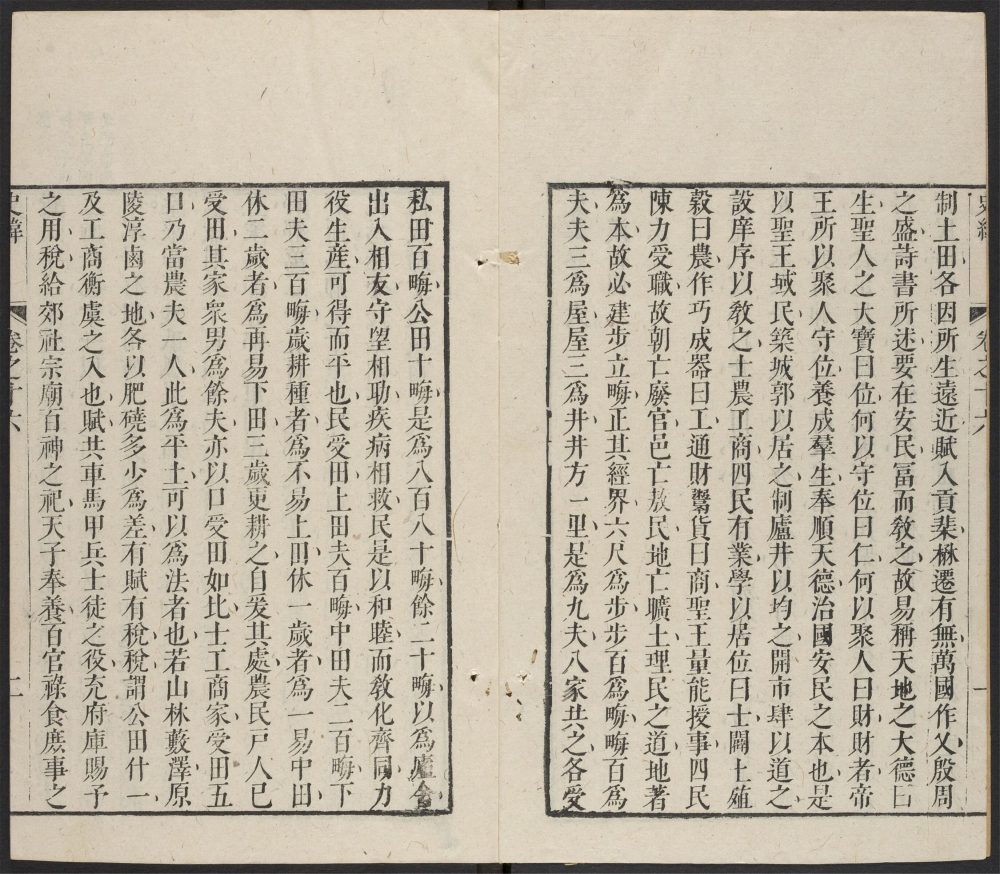 史緯
卷之十六
一
制土田各因所生遠近賦入貢棐楙遷有無萬國作乂殷周
之盛詩書所述要在安民富而教之故易稱天地之大德曰
生聖人之大寶曰位何以守位曰仁何以聚人曰財財者帝
王所以聚人守位養成羣生奉順天德治國安民之本也是
以聖王域民築城郭以居之制廬井以均之開市肆以道之
設庠序以教之士農工商四民有業學以居位曰士闢土殖
穀曰農作巧成器曰工通財鬻貨曰商聖王量能授事四民
陳力受職故朝亡廢官邑亡敖民地亡曠土理民之道地著
為本故必建步立畮正其經界六尺為步步百為畮畮百為
夫夫三為屋屋三為井井方一里是為九夫八家共之各受
私田百畮公田十畮是為八百八十畮餘二十畮以為廬舍
出入相友守望相助疾病相救民是以和睦而教化齊同力
役生產可得而平也民受田上田夫百畮中田夫二百畮下
田夫三百畮歲耕種者為不易上田休一歲者為一易中田
休二歲者為再易下田三歲更耕之自爰其處農民戸人已
受田其家衆男為餘夫亦以口受田如比士工商家受田五
口乃當農夫一人此為平土可以為法者也若山林藪澤原
陵淳鹵之地各以肥磽多少為差有賦有稅稅謂公田什一
及工商衡虞之入也賦共車馬甲兵士徒之役充府庫賜予
之用稅給郊社宗廟百神之祀天子奉養百官祿食庶事之
史緯
卷之十六
二